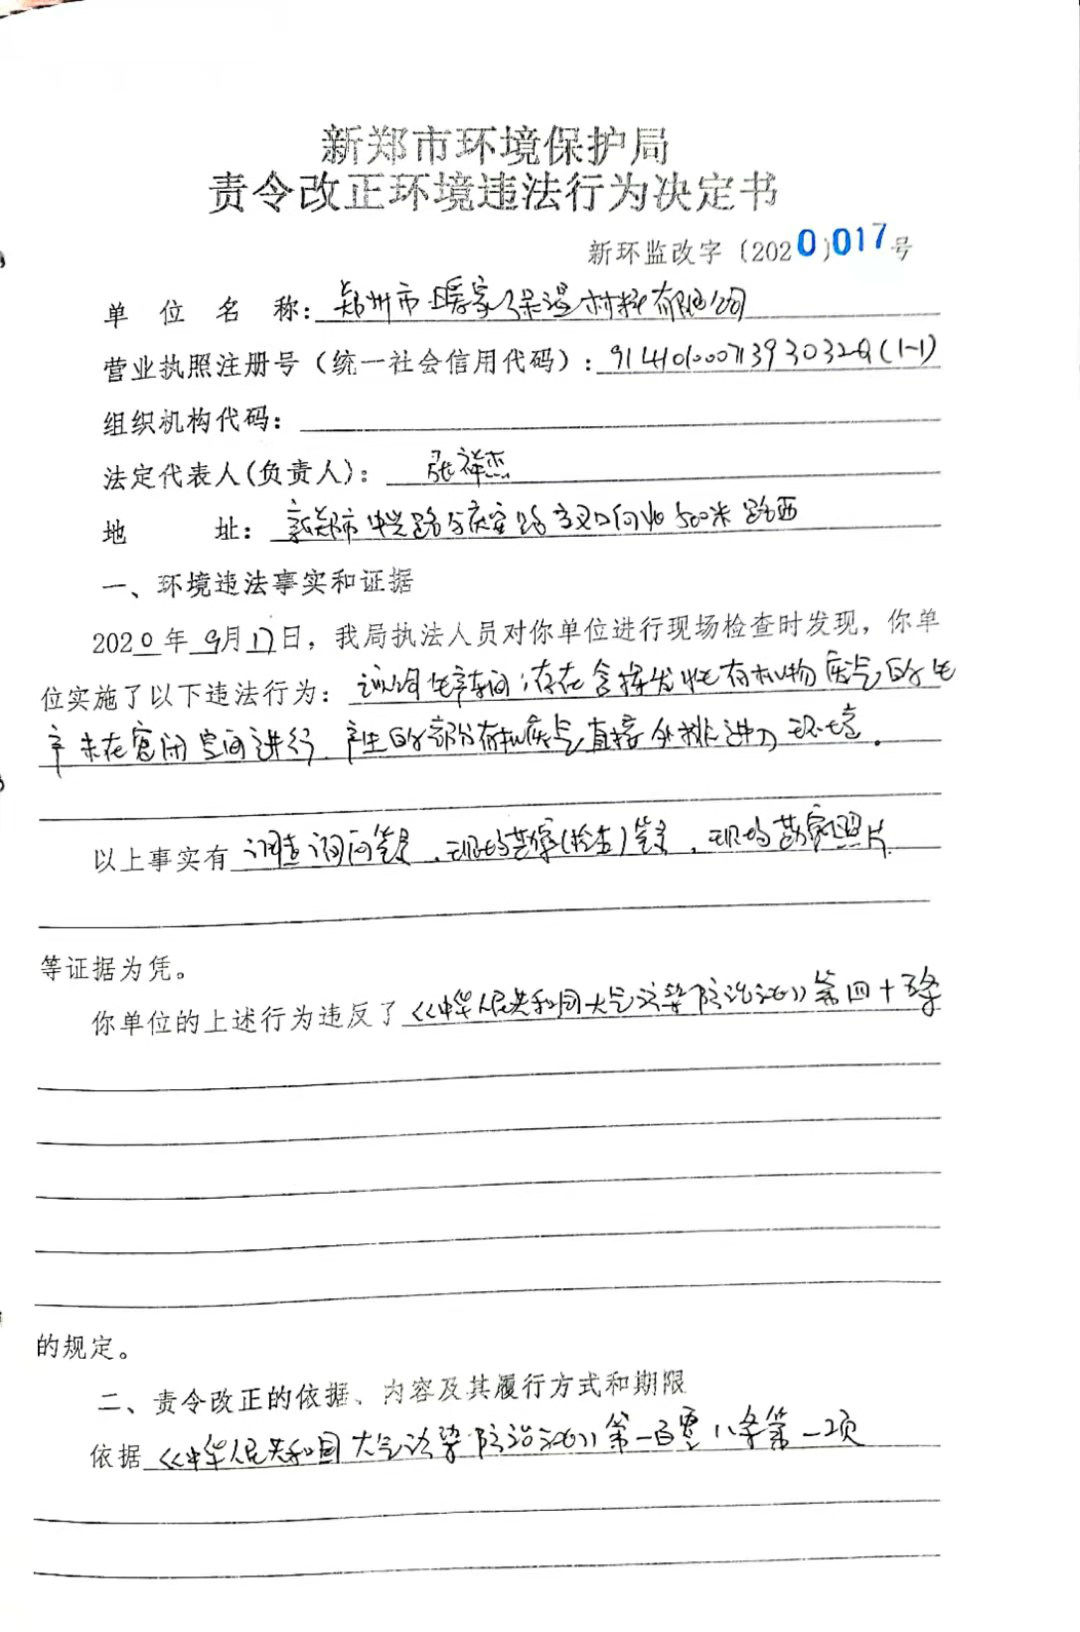 新郑市环境保护局
责令改正环境违法行为决定书
新环监改字〔2020〕017号
单位名称：郑州市暖家保温材料有限公司
营业执照注册号（统一社会信用代码）：91410100071393032Q(1-1)
组织机构代码：
法定代表人（负责人）：张祥杰
地址：新郑市中兴路与庆安路交叉口向北500米路西
一、环境违法事实和证据
2020年9月17日，我局执法人员对你单位进行现场检查时发现，你单
位实施了以下违法行为：该公司生产车间存在含挥发性有机物废气的生
产未在密闭空间进行，产生的部分有机废气直接外排进入环境。
以上事实有调查询问笔录、现场勘察(检查)笔录、现场勘察照片
等证据为凭。
你单位的上述行为违反了《中华人民共和国大气污染防治法》第四十五条
的规定。
二、责令改正的依据、内容及其履行方式和期限
依据《中华人民共和国大气污染防治法》第一百零八条第一项